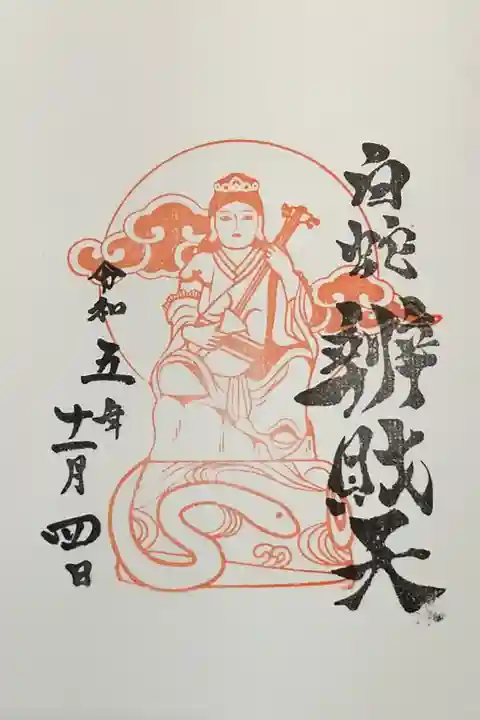 白蛇辨財天
令和五年十一月四日